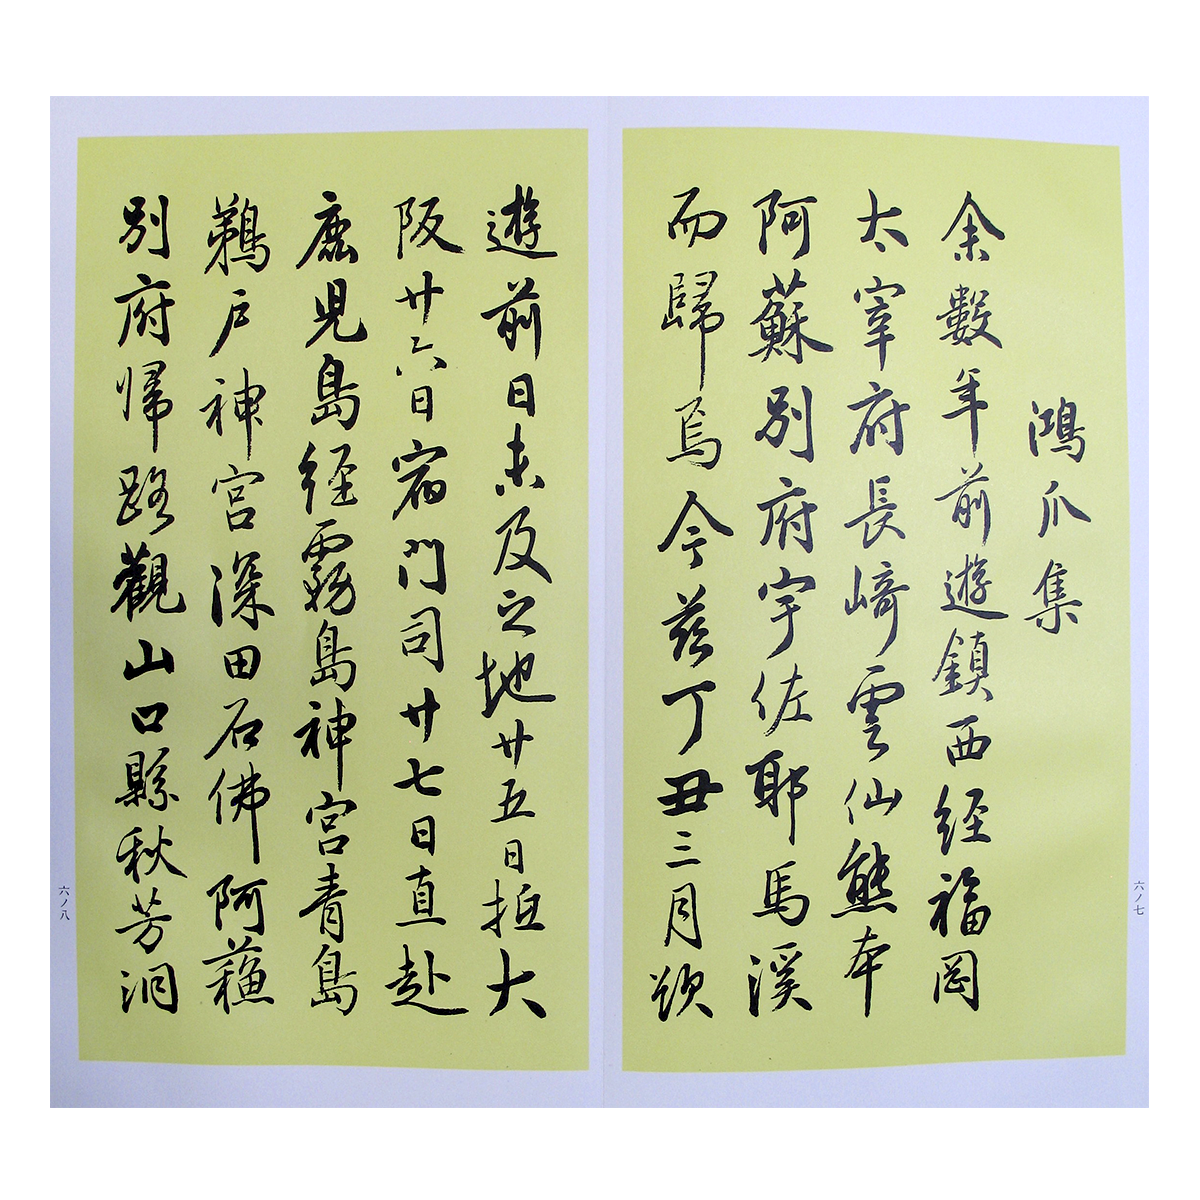 鴻爪集
余數年前遊鎮西経福岡
太宰府長崎雲仙熊本
阿蘇別府宇佐耶馬溪
而歸焉今茲丁丑三月欲
六ノ七
遊前日未及之地廿五日抵大
阪廿六日宿門司廿七日直赴
鹿児島経霧島神宮青島
鵜戸神宮深田石佛阿蘓
別府帰路觀山口縣秋芳洞
六ノ八